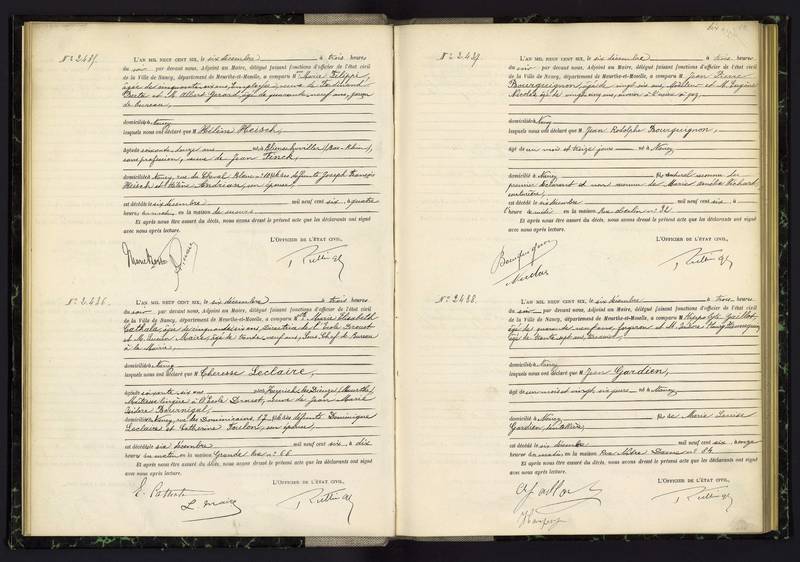 N° 2.485.
L'AN MIL NEUF CENT SIX, le six décembre à trois heures
du soir par devant nous, Adjoint au Maire, délégué faisant fonctions d'officier de l'état civil
de la Ville de Nancy, département de Meurthe-et-Moselle, a comparu M Marie Filippe,
âgée de cinquante six ans, employée, veuve de Ferdinand
et M. Albert Gérard âgé de quarante neuf ans, garçon
de bureau,
domiciliés à Nancy
lesquels nous ont déclaré que M Hélène Heisch,
âgée de soixante douze ans née à (Bas-Rhin),
sans profession, veuve de Jean Finck,
domiciliée à Nancy, rue du Cheval Blanc n° fille des défunts Joseph François
Heisch et Hélène Andrian, son épouse,
est décédée le six décembre mil neuf cent six, à quatre
heures du matin, en la maison
Et après nous être assuré du décès, nous avons dressé le présent acte que les déclarants ont signé
avec nous après lecture.
L'OFFICIER DE L'ÉTAT CIVIL,
N° 2.486.
L'AN MIL NEUF CENT SIX, le six décembre à trois heures
du soir par devant nous, Adjoint au Maire, délégué faisant fonctions d'officier de l'état civil
de la Ville de Nancy, département de Meurthe-et-Moselle, a comparu M Marie Elisabeth
Cathala, âgée de cinquante six ans, Directrice de l'Ecole Drouot
et M. Lucien Maire, âgé de trente neuf ans, Sous Chef de Bureau
à la Mairie,
domiciliés à Nancy
lesquels nous ont déclaré que M Thérèse Leclaire,
âgée de soixante six ans née à (Meurthe)
Maîtresse lingère à l'Ecole Drouot, veuve de Jean Marie
Isidore
domiciliée à Nancy, rue des Dominicains 17 fille des défunts Dominique
Leclaire et Catherine Toulon, son épouse,
est décédée le six décembre mil neuf cent six, à dix
heures du matin, en la maison Grande Rue n° 66
Et après nous être assuré du décès, nous avons dressé le présent acte que les déclarants ont signé
avec nous après lecture.
L'OFFICIER DE L'ÉTAT CIVIL,
L. Maire
N° 2.487.
L'AN MIL NEUF CENT SIX, le six décembre à trois heures
du soir par devant nous, Adjoint au Maire, délégué faisant fonctions d'officier de l'état civil
de la Ville de Nancy, département de Meurthe-et-Moselle, a comparu M Jean Pierre
Bourguignon, âgé de vingt six ans, et M. Eugène
Nicolas âgé de vingt cinq ans, à l'usine à gaz,
domiciliés à Nancy
lesquels nous ont déclaré que M Jean Rodolphe Bourguignon,
âgé de un mois et treize jours né à Nancy
domicilié à Nancy fils naturel reconnu du
premier déclarant et non reconnu de Marie Amélie Richard,
couturière,
est décédé le six décembre mil neuf cent six, à
heures du matin en la maison Rue n° 32
Et après nous être assuré du décès, nous avons dressé le présent acte que les déclarants ont signé
avec nous après lecture.
L'OFFICIER DE L'ÉTAT CIVIL,
Bourguignon
Nicolas
N° 2488.
L'AN MIL NEUF CENT SIX, le six décembre à trois heures
du soir par devant nous, Adjoint au Maire, délégué faisant fonctions d'officier de l'état civil
de la Ville de Nancy, département de Meurthe-et-Moselle, a comparu M Hippolyte
âgé de quarante neuf ans, forgeron et M. Isidore
âgé de trente sept ans,
domiciliés à Nancy
lesquels nous ont déclaré que M Jean Gardien,
âgé de un mois et vingt six jours né à Nancy
domicilié à Nancy fils de Marie Louise
Gardien,
est décédé le six décembre mil neuf cent six, à onze
heures du matin, en la maison Rue Notre Dame n° 84
Et après nous être assuré du décès, nous avons dressé le présent acte que les déclarants ont signé
avec nous après lecture.
L'OFFICIER DE L'ÉTAT CIVIL,